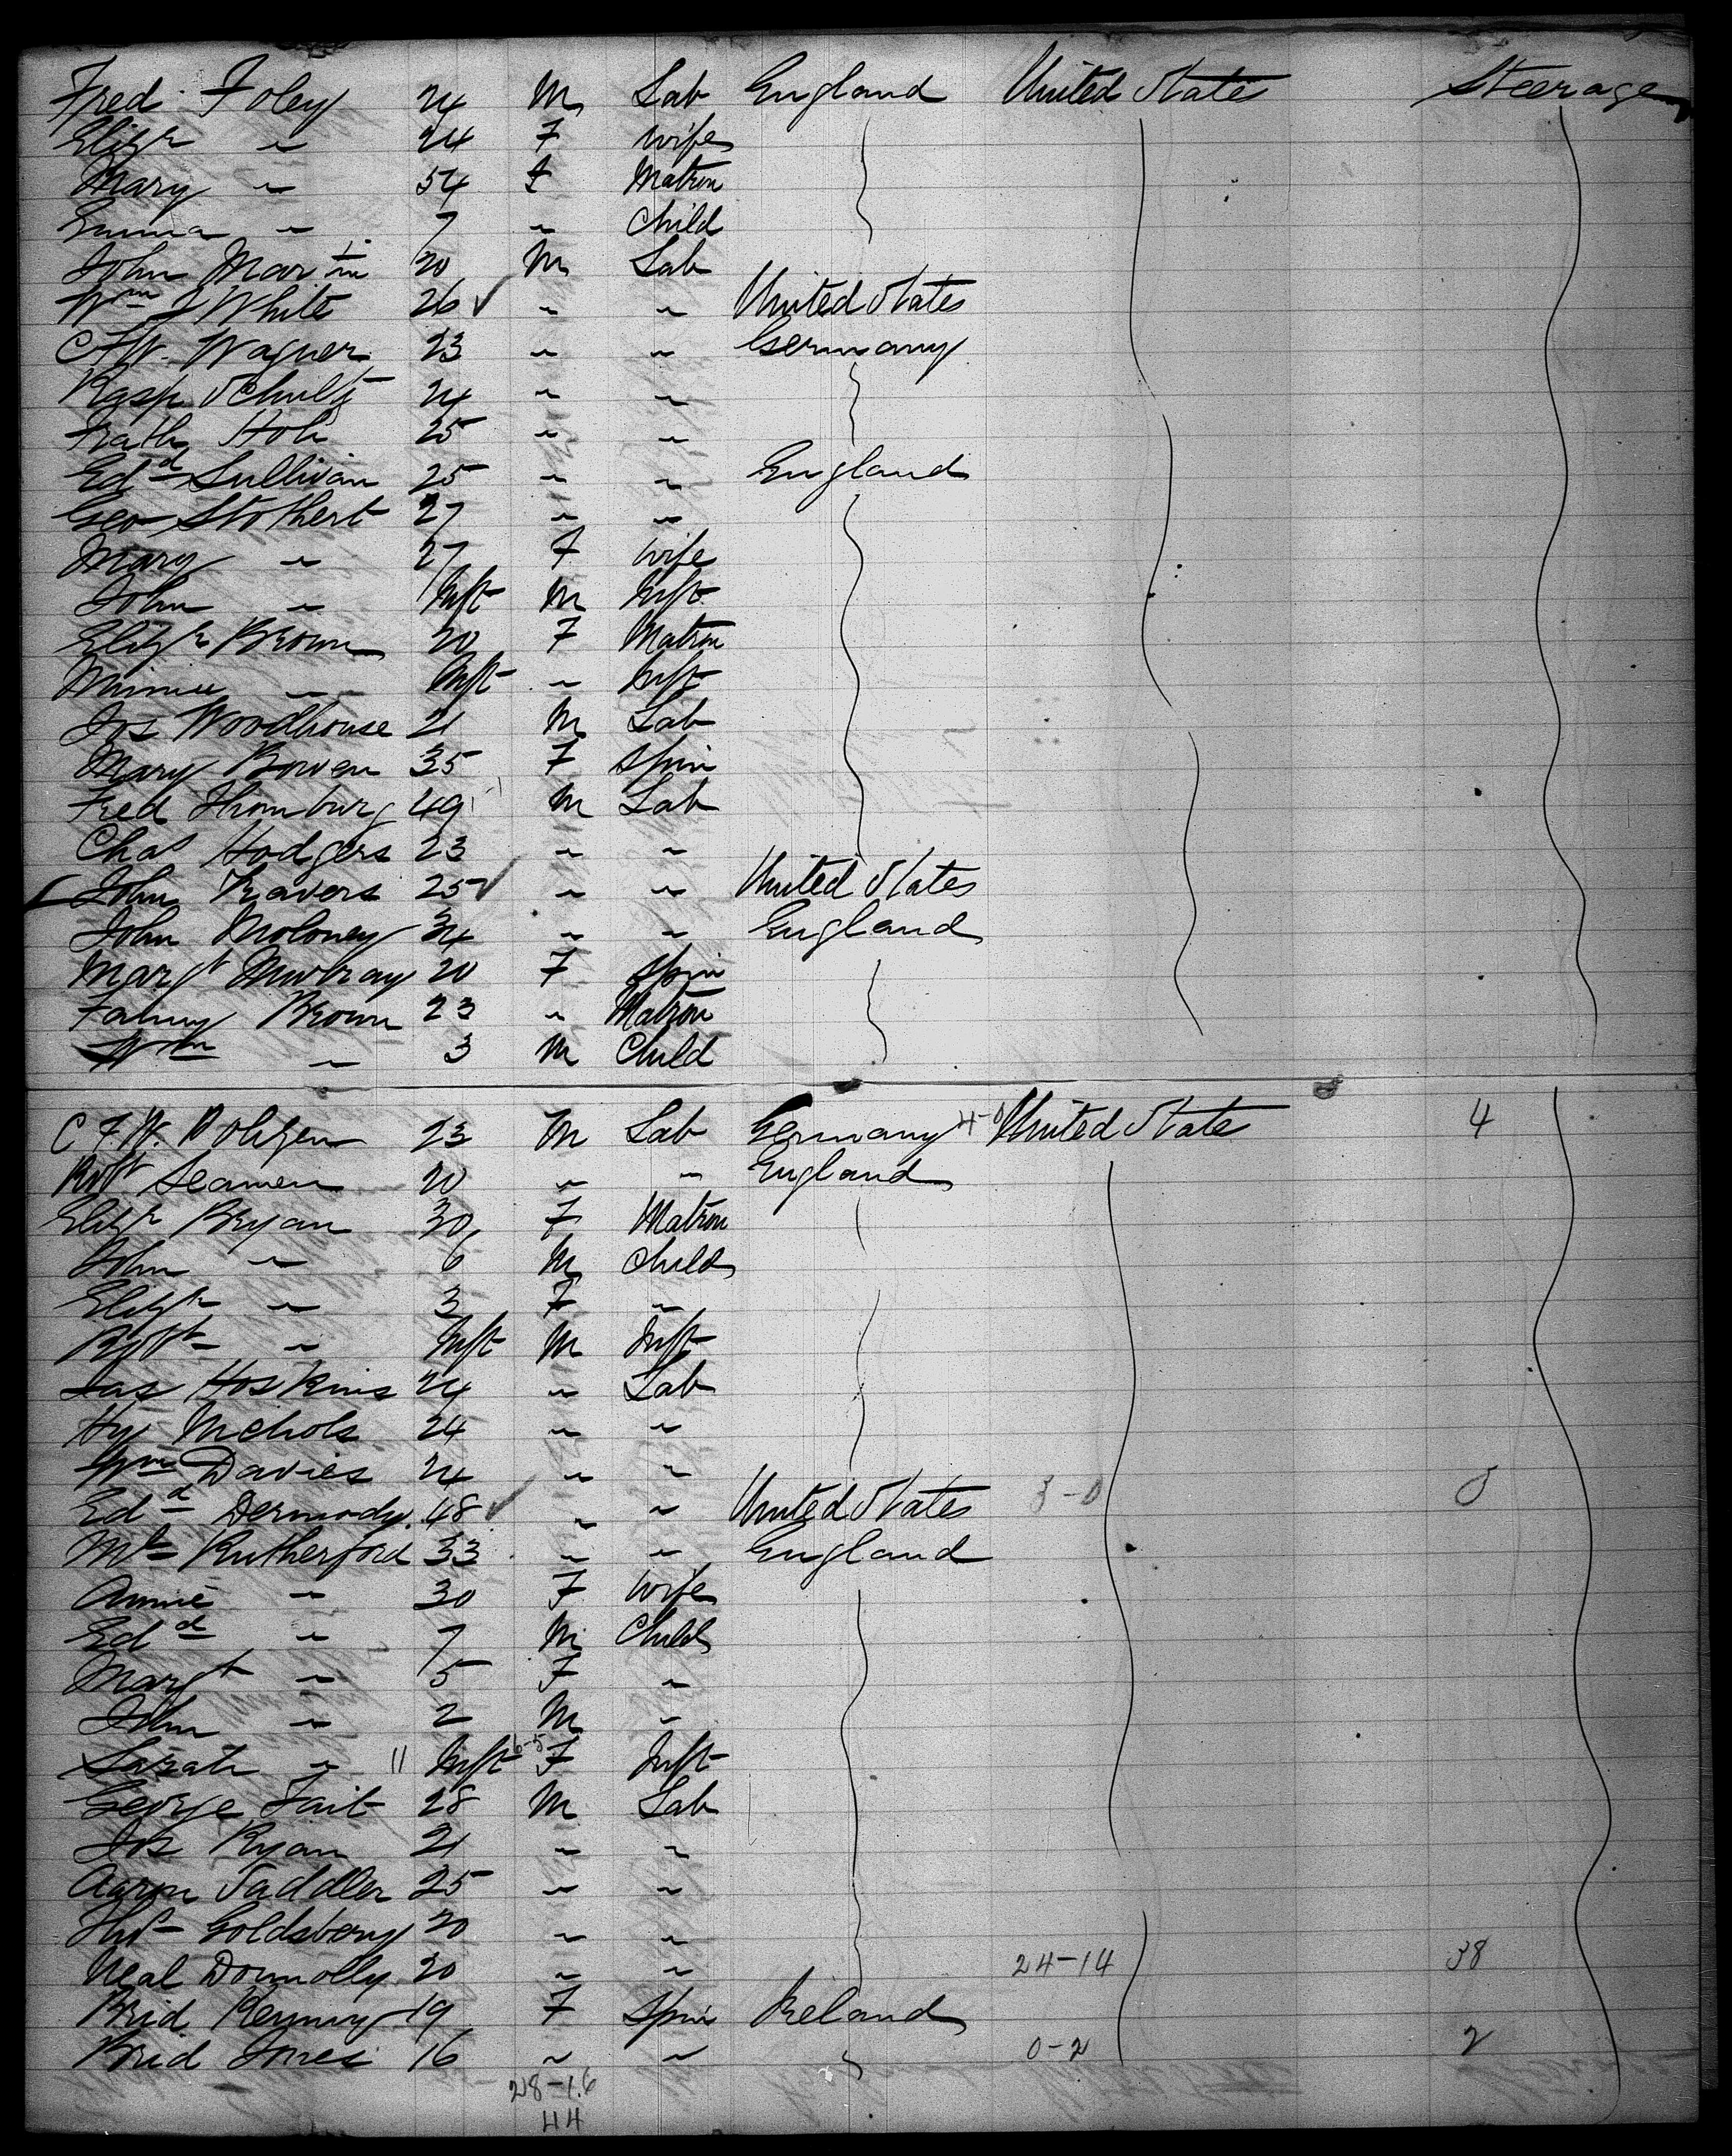 Fred Foley 24 M Lab England United States Steerage
Elizth " 24 F wife
Mary " 54 F Matron
Emma " 7 " Child
John Martin 20 M Lab
Wm J White 26 ✓ " " United States
C F W. Wagner 23 " " Germany
Kasp Schultz 24 " "
25 " "
Edd Sullivan 25 " " England
Geo Stothert 27 " "
Mary " 27 F wife
John " Inft M Inft
Elizth Brown 20 F Matron
Minnie " Inft " Inft
Jos Woodhouse 21 M Lab
Mary Bowen 35 F Spin
Fred Thornburg 49 M Lab
Chas Hodgers 23 " "
John Travers 25 ✓ " " United States
John Moloney 34 " " England
Margt Murray 20 F Spin
Fanny Brown 23 " Matron
Wm " 3 M Child
C F W. 23 M Lab Germany 4-0 United States 4
Robt Seamen 20 " " England
Elizth Bryan 30 F Matron
John " 6 M Child
Elizth " 3 F "
Robt " Inft M Inft
Jas Hoskins 24 " Lab
Hy Nichols 24 " "
Wm Davies 24 " "
Edd Dermody 48 ✓ " " United States 3-0
Rutherford 33 " " England
Annie " 30 F wife
Edd " 7 M Child
Margt " 5 F "
John " 2 M "
Sarah " 11 Inft 6-5 F Inft
George Tait 28 M Lab
Jos Ryan 21 " "
Aaron Saddler 25 " "
Thos Goldsbery 20 " "
Neal Donnolly 20 " " 24-14 38
Brid Kenny 19 F Spin Ireland
Brid Jones 16 " " 0-2 2
28-16
44